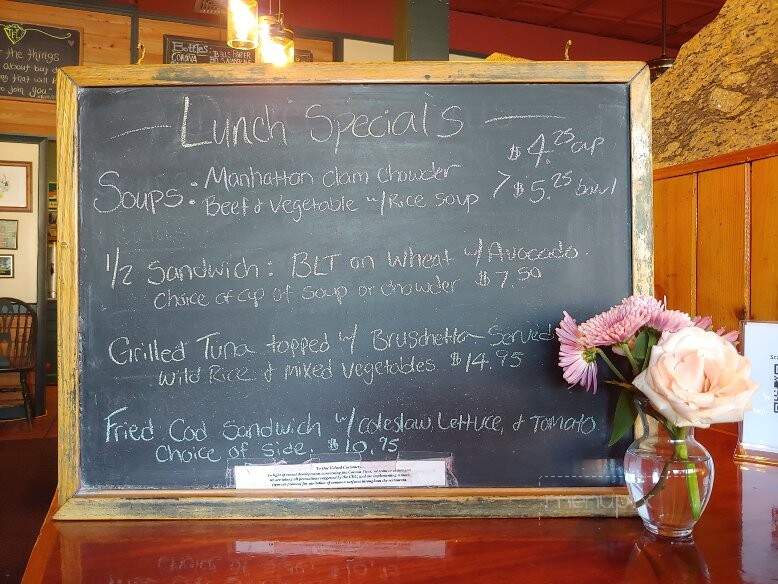 the things
about buy
ng that will
to join you"
Bottles
CORONA
Lunch Specials
$4.25 cup
Soups: Manhattan clam chowder
Beef & Vegetable w/Rice soup > $5.25 bowl
1/2 Sandwich: BLT on Wheat w/Avocado
Choice of cup of soup or chowder $7.50
Grilled Tuna topped w/ Bruschetta Served
Wild Rice & mixed vegetables $14.95
Fried Cod Sandwich w/coleslaw, Lettuce, & Tomato
Choice of side. $10.95
To Our Valued Customers,
menup